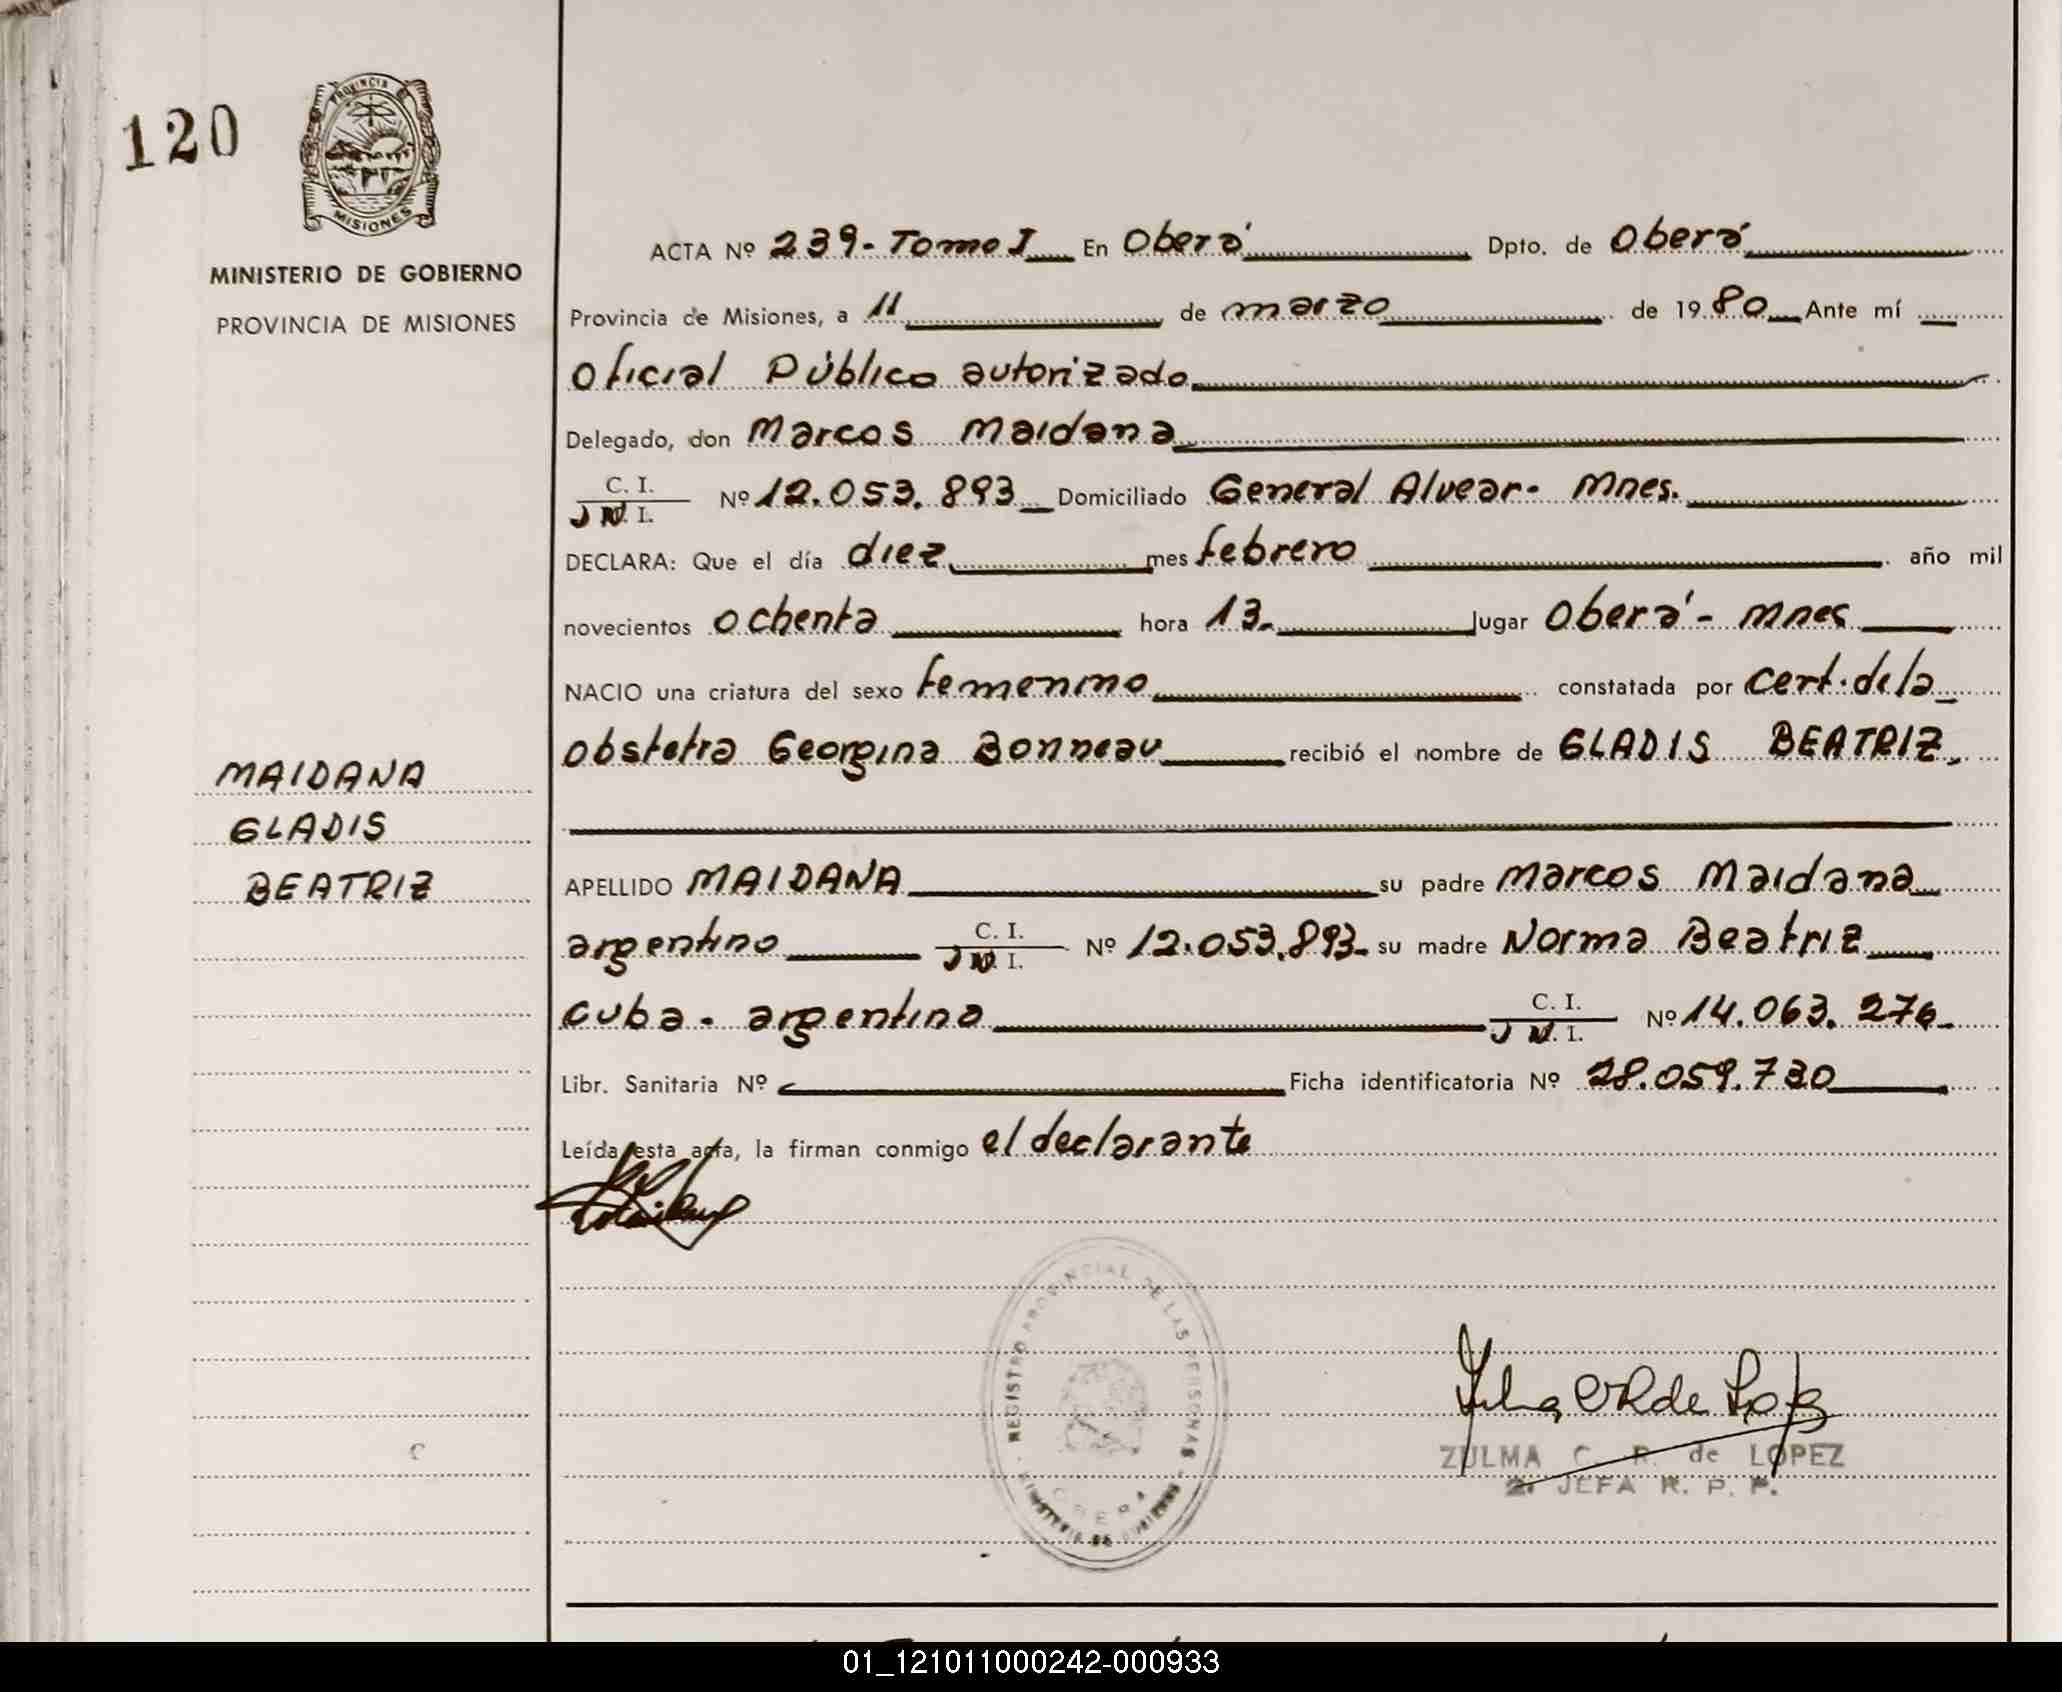 120
PROVINCIA DE
MISIONES
MINISTERIO DE GOBIERNO
PROVINCIA DE MISIONES
ACTA Nº 239- Tomo I En Oberá Dpto. de Oberá
Provincia de Misiones, a 11 de marzo de 1980 Ante mí
Oficial Público autorizado
Delegado, don Marcos Maidana
C. I.
Nº 12.053.893 Domiciliado General Alvear- Mnes.
D N. I.
DECLARA: Que el día diez mes febrero año mil
novecientos ochenta hora 13. lugar Oberá - Mnes
NACIO una criatura del sexo femenino constatada por cert. de la
obstetra Georgina Bonneau recibió el nombre de GLADIS BEATRIZ
MAIDANA
GLADIS
BEATRIZ
APELLIDO MAIDANA su padre Marcos Maidana
argentino C. I. Nº 12.053.893- su madre Norma Beatriz
D N. I.
Cuba - argentina C. I. Nº 14.063.276-
D N. I.
Libr. Sanitaria Nº Ficha identificatoria Nº 28.059.730
Leída esta acta, la firman conmigo el declarante
REGISTRO PROVINCIAL DE LAS PERSONAS
OBERA
MINISTERIO DE GOBIERNO
ZULMA C. R. de LOPEZ
2. JEFA R. P. P.
01_121011000242-000933